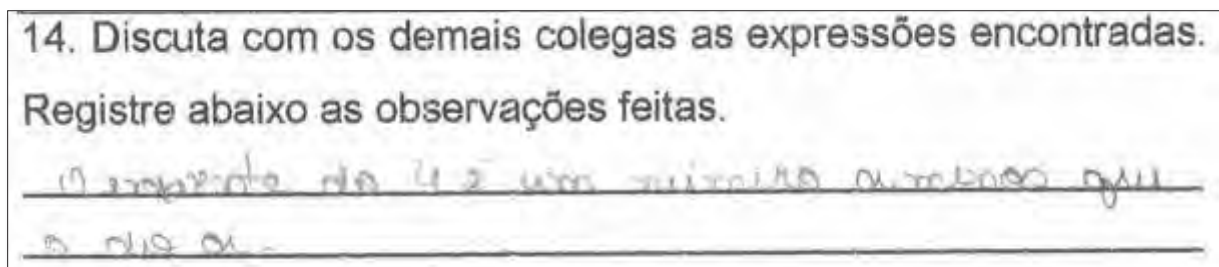 14. Discuta com os demais colegas as expressões encontradas.
Registre abaixo as observações feitas.
O expoente do 4 é um número a menos que
o dia